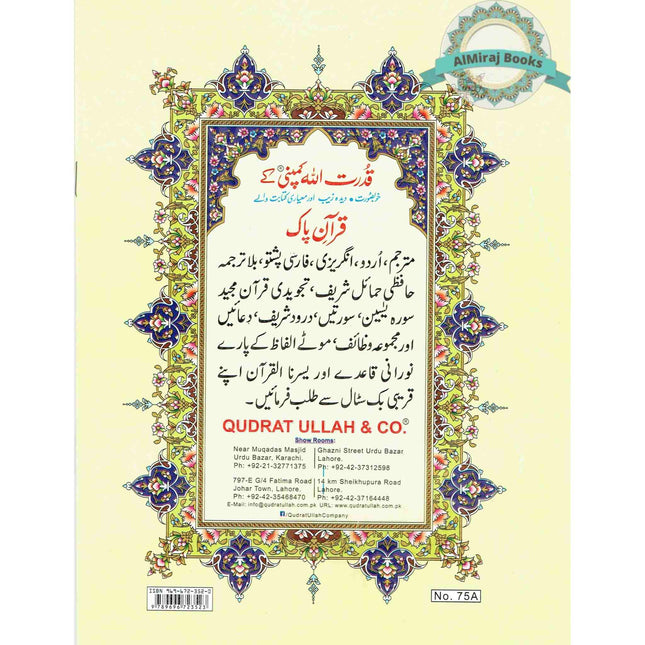 AlMiraj Books
قدرت اللہ کمپنی® کے
خوبصورت • دیدہ زیب اور معیاری کتابت والے
قرآنِ پاک
مترجم، اُردو، انگریزی، فارسی پشتو، بلا ترجمہ
حافظی حمائل شریف، تجویدی قرآن مجید
سورہ یٰسین، سورتیں، درود شریف، دعائیں
اور مجموعہ وظائف، موٹے الفاظ کے پارے
نورانی قاعدے اور یسرنا القرآن اپنے
قریبی بک سٹال سے طلب فرمائیں۔
QUDRAT ULLAH & CO.®
Show Rooms:
Near Muqadas Masjid
Urdu Bazar, Karachi.
Ph: +92-21-32771375
Ghazni Street Urdu Bazar
Lahore.
Ph: +92-42-37312598
797-E G/4 Fatima Road
Johar Town, Lahore.
Ph: +92-42-35468470
14 km Sheikhupura Road
Lahore.
Ph: +92-42-37164448
E-Mail: info@qudratullah.com.pk URL: www.qudratullah.com.pk
/QudratUllahCompany
ISBN 969-672-352-0
9 789696 723523
No. 75A